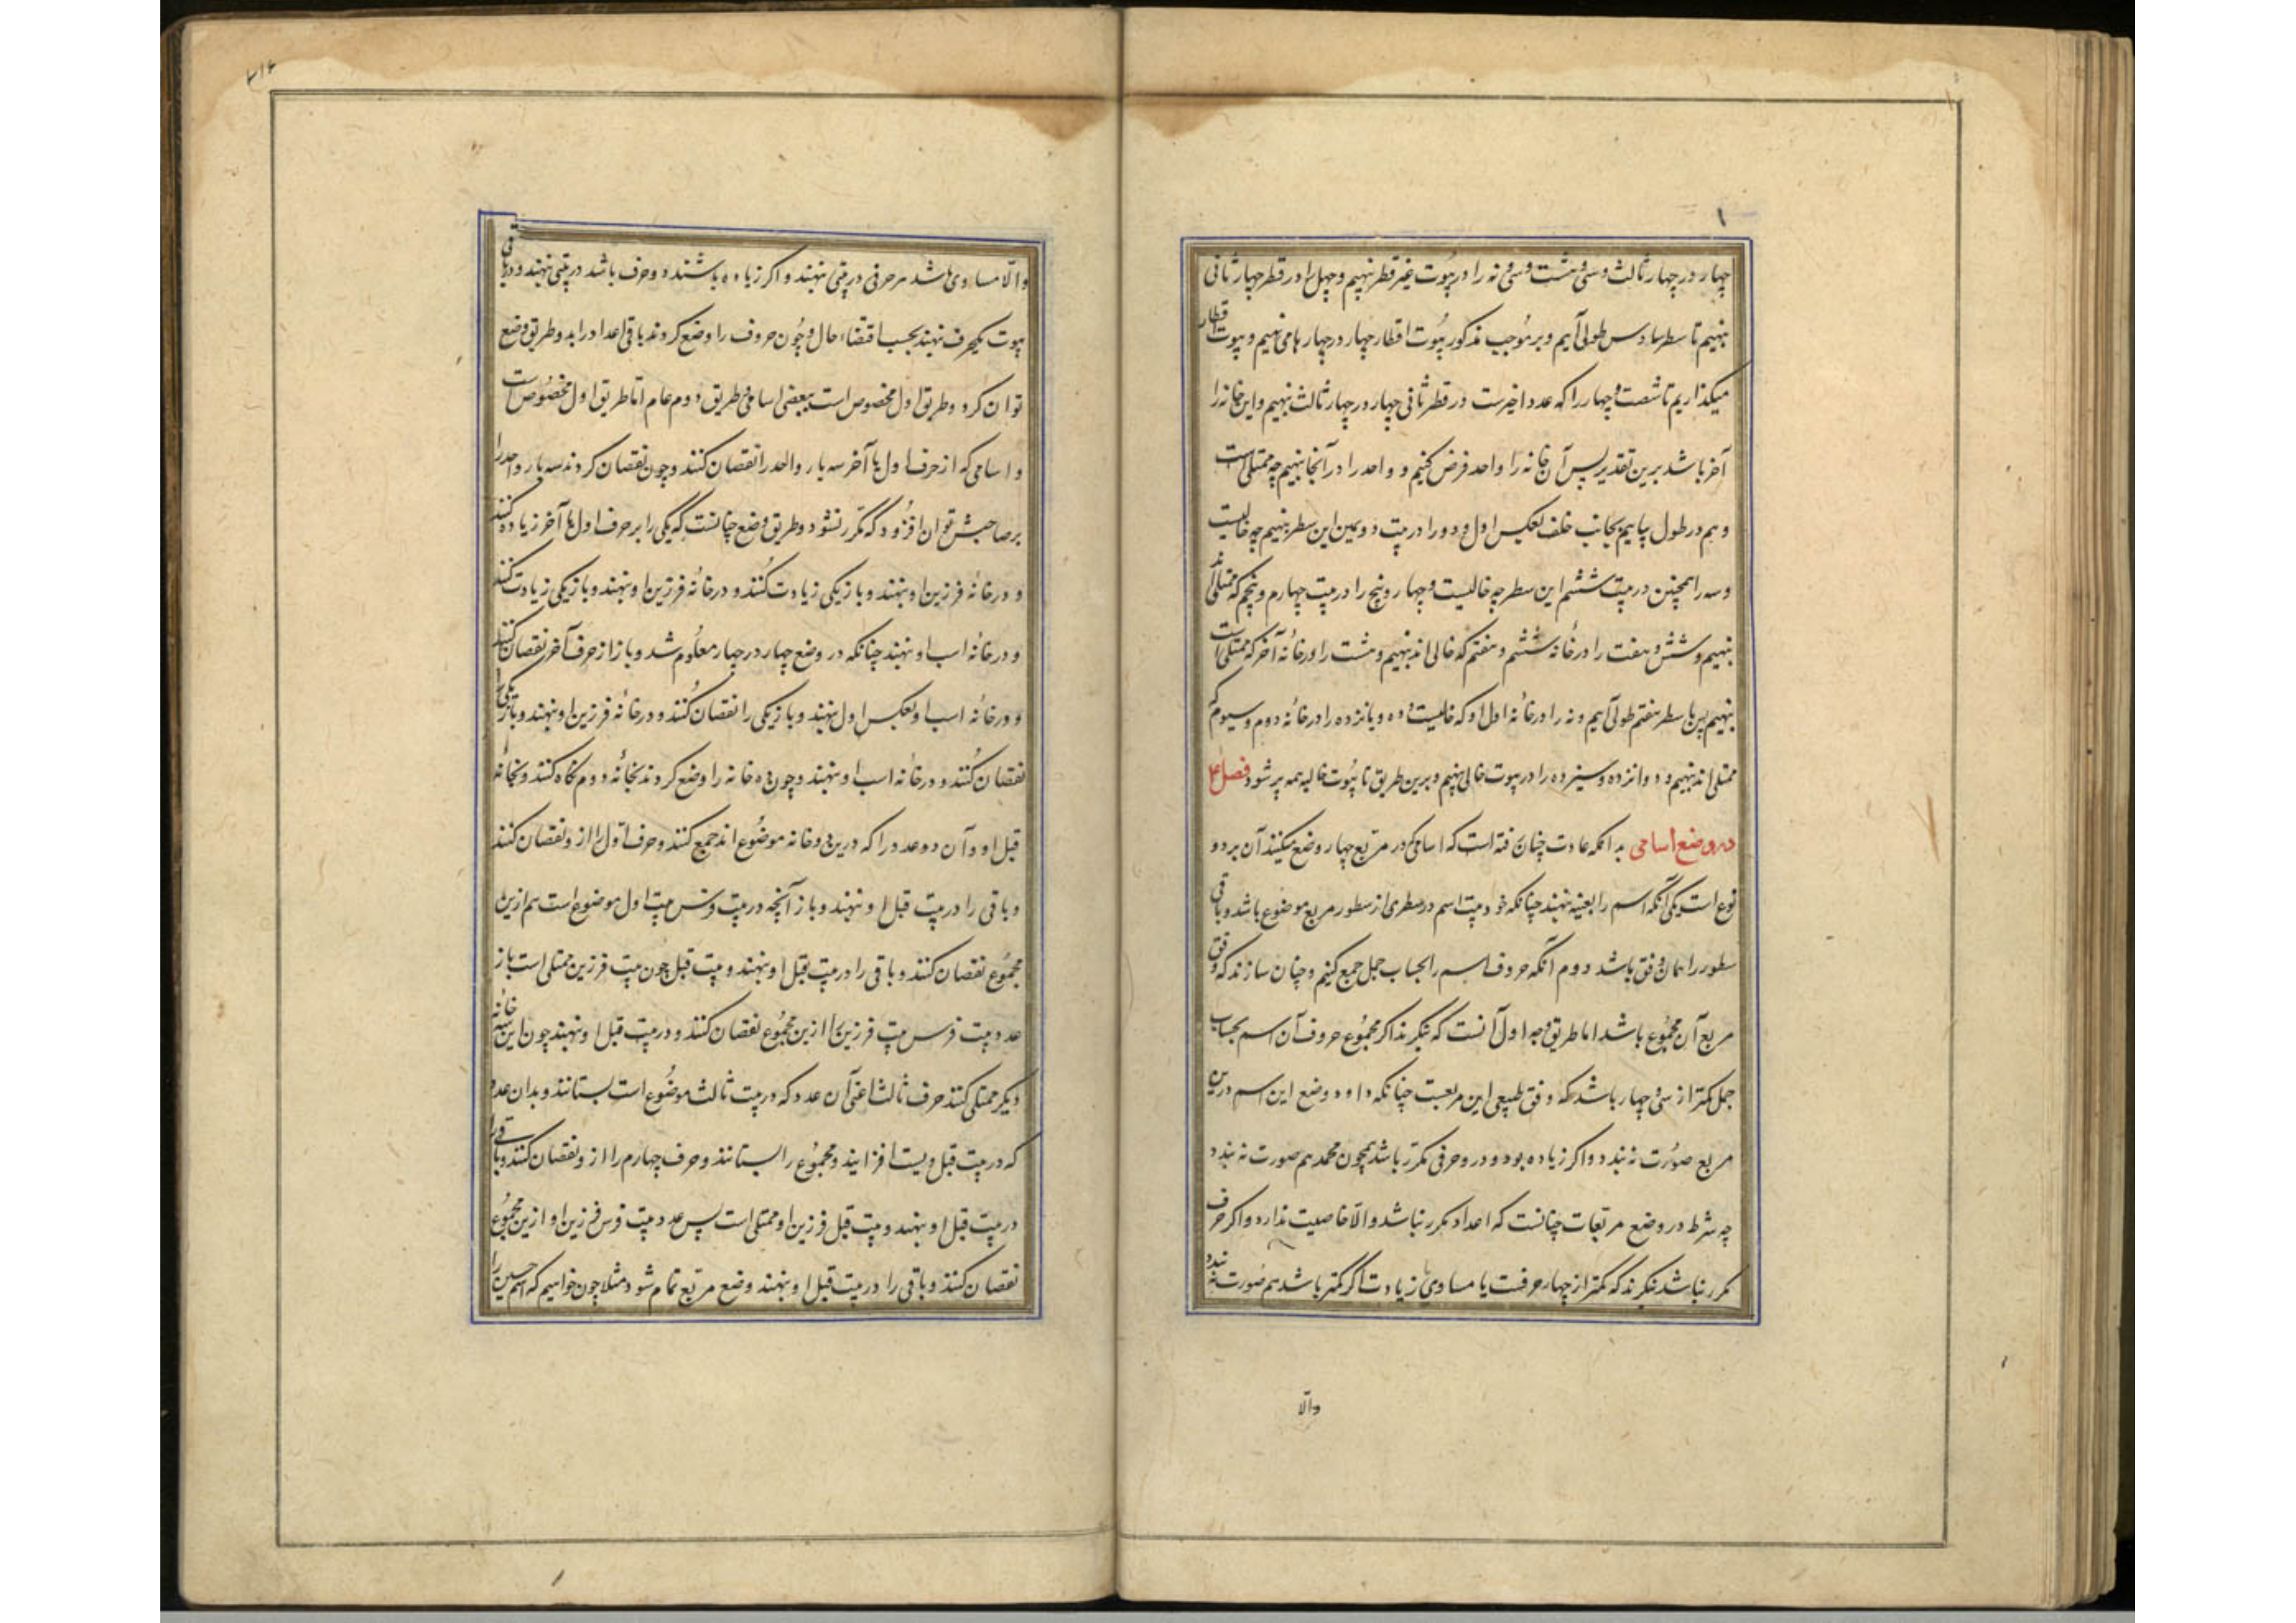 چهار در چهار ثالث و سی و هشت و سی و نه را در بیوت غیر قطر نهیم و چهل را در قطر چهار ثانی
نهیم تا سطر سادس طولی آییم و بر موجب مذکور بیوت اقطار چهار در چهار ها می نهیم و بیوت اقطار
میکذاریم تا شصت و چهار را که عدد اخیرست در قطر ثانی چهار در چهار ثالث نهیم و این خانه را
آخر باشد برین تقدیر پس آن خانه را واحد فرض کنیم و واحد را در آنجا نهیم چه ممتلی است
و هم در طول بیاییم بجانب خلف بعکس اول و دو را در بیت دویمین این سطر نهیم چه خالیست
و سه را همچنین در بیت ششم این سطر چه خالیست و چهار و پنج را در بیت چهارم و پنجم که ممتلی اند
نهیم و شش و هفت را در خانه ششم و هفتم که خالی اند نهیم و هشت را در خانه آخر که ممتلی است
نهیم پس با سطر هفتم طولی آییم و نه را در خانه اول او که خالیست و ده و یانزده را در خانه دوم و سیوم که
ممتلی اند نهیم و دوانزده و سیزده را در بیوت خالی نهیم و برین طریق تا بیوت خالیه همه پر شود فصل ۴
در وضع اسامی بدانکه عادت چنان رفته است که اسامی که در مربع چهار وضع میکنند آن بر دو
نوع است یکی آنکه اسم را بعینه نهند چنانکه خود بیت اسم در سطری از سطور مربع موضوع باشد و باقی
سطور را همان وفق باشد دوم آنکه حروف اسم را بحساب جمل جمع کنیم و چنان سازند که وفق
مربع آن مجموع باشد اما طریق وجه اول آنست که بنگرند اکر مجموع حروف آن اسم بحساب
جمل کمتر از سی و چهار باشد که وفق طبیعی این مربعست چنانکه داده وضع این اسم درین
مربع صورت نه بندد و اکر زیاده بود و در و حرفی مکرر باشد همچون محمد هم صورت نه بندد
چه شرط در وضع مربعات چنانست که اعداد مکرر نباشد والا خاصیت ندارد و اکر حرف
مکرر نباشد بنگرند که کمتر از چهار حرفست یا مساوی یا زیادت اکر کمتر باشد هم صورت نه بندد
والا
والا مساوی باشد هر حرفی در بیتی نهند و اکر زیاده باشند دو حرف باشد در بیتی نهند و در باقی
بیوت یکحرف نهند بحسب اقتضاء حال و چون حروف را وضع کردند باقی اعداد را بدو طریق وضع
توان کرد و طریق اول مخصوص است ببعضی اسامی و طریق دوم عام اما طریق اول مخصوص است
و اسامی که از حرف اول تا آخر سه بار واحد را نقصان کنند و چون نقصان کردند سه بار واحد را
بر صاحبش توان افزود که مکرر نشود و طریق وضع چنانست که یکی را بر حرف اول تا آخر زیاده کنند
و در خانه فرزین او نهند و باز یکی زیادت کنند و در خانه فرزین او نهند و باز یکی زیادت کنند
و در خانه اسب او نهند چنانکه در وضع چهار در چهار معلوم شد و باز از حرف آخر نقصان کنند
و در خانه اسب او بعکس اول نهند و باز یکی را نقصان کنند و در خانه فرزین او نهند و باز یکی را
نقصان کنند و در خانه اسب او نهند و چون ده خانه را وضع کردند بخانه دوم نکاه کنند و بخانه
قبل او و آن دو عدد را که درین دو خانه موضوع اند جمع کنند و حرف اول را از و نقصان کنند
و باقی را در بیت قبل او نهند و باز آنچه در بیت فرس بیت اول موضوع است هم ازین
مجموع نقصان کنند و باقی را در بیت قبل او نهند و بیت قبل چون بیت فرزین ممتلی است باز
عدد بیت فرس بیت فرزین را ازین مجموع نقصان کنند و در بیت قبل او نهند چون این خانه
دیکر ممتلی کنند حرف ثالث اعنی آن عدد که در بیت ثالث موضوع است بستانند و بدان عدد
که در بیت قبل ویست افزایند و مجموع را بستانند و حرف چهارم را از و نقصان کنند و باقی را
در بیت قبل او نهند و بیت قبل فرزین او ممتلی است پس عدد بیت فرس فرزین او ازین مجموع
نقصان کنند و باقی را در بیت قبل او نهند وضع مربع تمام شود مثلا چون خواهیم که اسم حسین را